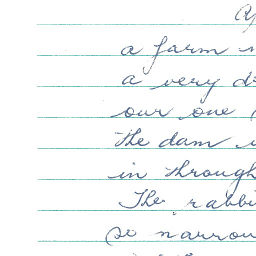 a farm
a very
our one
the dam
in through
The rabbi
so narrow